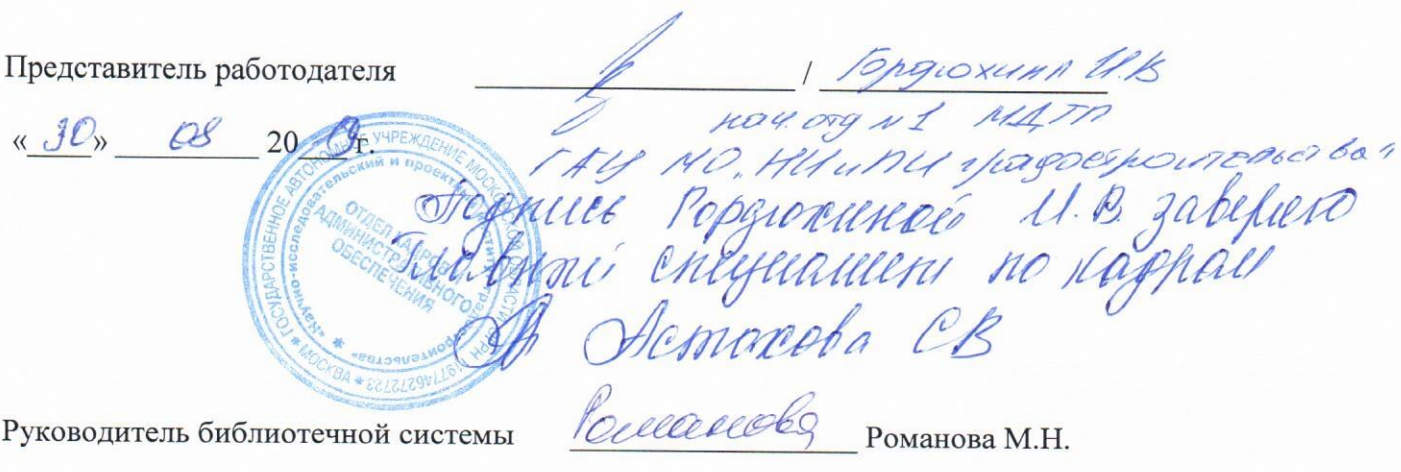 Представитель работодателя / Гордюхина И.В
« 30 » 08 20 г.
нач. отд № 1 МДТП
ГАУ МО "НИиПИ градостроительства"
Подпись Гордюхиной И.В. заверяю
Главный специалист по кадрам
Астахова СВ
ГОСУДАРСТВЕННОЕ АВТОНОМНОЕ УЧРЕЖДЕНИЕ МОСКОВСКОЙ ОБЛАСТИ * ОГРН 1197746272723 * МОСКВА *
«Научно-исследовательский и проектный институт градостроительства» *
ОТДЕЛ КАДРОВ И
АДМИНИСТРАТИВНОГО
ОБЕСПЕЧЕНИЯ
Руководитель библиотечной системы Романова Романова М.Н.